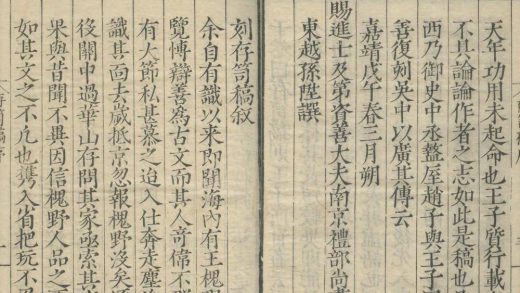 天年功用未起命也王子皆行載
不具論論作者之志如此是稿也
西乃御史中丞盩厔趙子與王子
善復刻吳中以廣其傳云
嘉靖戊午春三月朔
賜進士及第資善大夫南京禮部尚
東越孫陞譔
刻存笥稿叙
余自有識以來即聞海內有王槐
覽博辯善爲古文而其人奇偉不
有大節私甚慕之迨入仕奔走塵
識其面去歲抵京忽報槐野沒矣
後關中過華山存問其家亟索其
果與昔聞不異因信槐野人品之
如其文之不凡也携入省把玩不